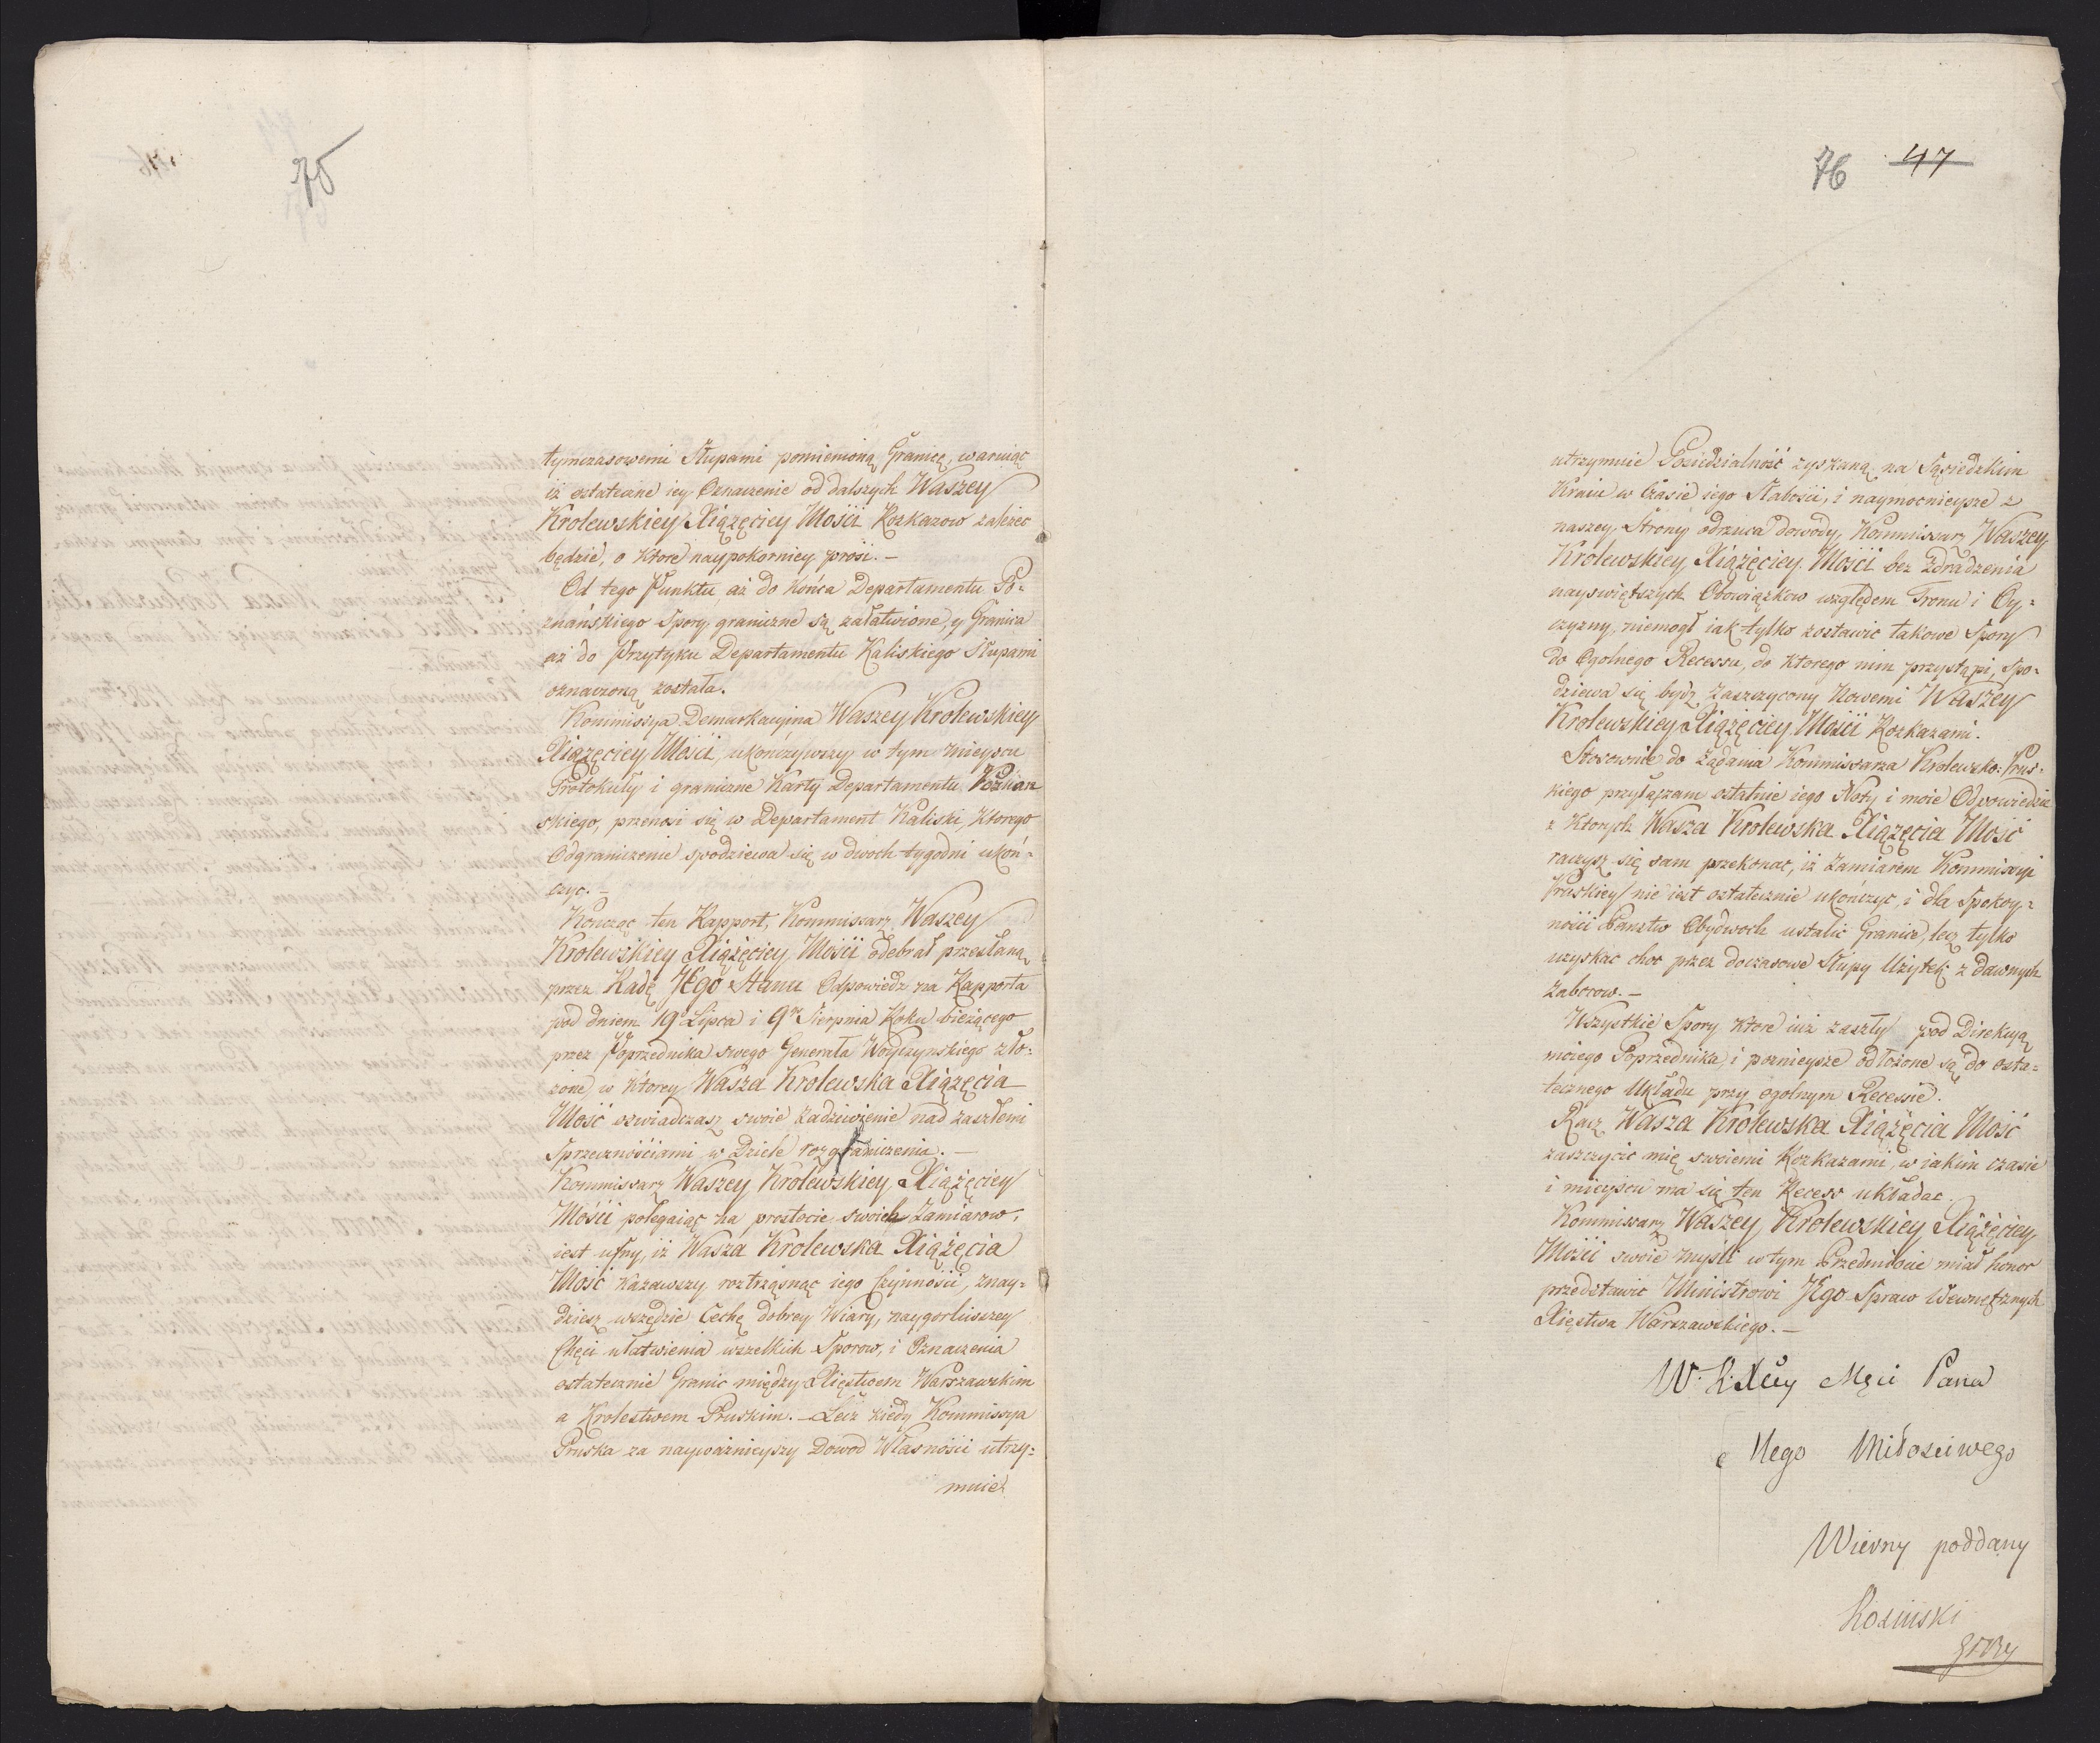 75
tymczasowemi Słupami pomienioną Granicę, waruiąc
iż ostateczne iey Oznaczenie od dalszych Waszey
Krolewskiey Xiążęciey Mości Rozkazow zależec
będzie, o ktore naypokorniey prosi. –
Od tego Punktu aż do końca Departamentu Po=
znańskiego Spory graniczne są załatwione, y Granica
aż do Przytyku Departamentu Kaliskiego Słupami
oznaczoną została.
Kommissya Demarkacyina Waszey Krolewskiey
Xiążęciey Mości, ukończywszy w tym mieyscu
Protokuły i graniczne Karty Departamentu Poznan
skiego, przenosi się w Departament Kaliski, ktorego
Odgraniczenie spodziewa się w dwoch tygodni ukoń=
czyc. –
Kończąc ten Rapport, Kommissarz Waszey
Krolewskiey Xiążęciey Mości odebrał przesłaną
przez Radę JEgo Stanu Odpowiedz na Rapporta
pod dniem 19 Lipca i 9go Sierpnia Roku bieżącego
przez Poprzednika swego Generała Woyczynskiego zło=
żone, w ktorey Wasza Krolewska Xiążęcia
Mość oswiadczasz swoie zadziwienie nad zaszłemi
Sprzecznościami w Dziele rozgraniczenia. –
Kommissarz Waszey Krolewskiey Xiążęciey
Mości polegaiąc na prostocie swoich Zamiarow,
iest ufny, iż Wasza Krolewska Xiążęcia
Mość kazawszy roztrząsnąc iego Czynności, znay=
dziesz wszędzie Cechę dobrey Wiary, naygorliwszey
Chęci ułatwienia wszelkich Sporow, i Oznaczenia
ostatecznie Granic między Xięstwem Warszawskim
a Krolestwem Pruskim. – Lecz kiedy Kommissya
Pruska za nayważnieyszy Dowod Własności utrzy=
muie
76 47
utrzymuie Posiedzialność zyskaną na Sąsiedzkim
Kraiu w Czasie iego Słabości, i naymocnieysze z
naszey Strony odrzuca dowody, Kommissarz Waszey
Krolewskiey Xiążęciey Mości bez zdradzenia
nayswiętszych Obowiązkow względem Tronu i Oy=
czyzny, niemogł iak tylko zostawic takowe Spory
do Ogolnego Recessu, do ktorego nim przystąpi, spo=
dziewa się bydz zaszczycony Nowemi Waszey
Krolewskiey Xiążęciey Mości Rozkazami.
Stosownie do żądania Kommissarza Krolewsko: Prus=
kiego przyłączam ostatnie iego Noty i moie Odpowiedzi
z ktorych Wasza Krolewska Xiążęcia Mość
raczysz się sam przekonac, iż Zamiarem Kommissyi
Pruskiey nie iest ostatecznie ukończyc, i dla Spokoy=
ności Państw Obydwoch ustalic Granice, lecz tylko
uzyskac choc przez doczasowe Słupy Użytek z dawnych
Zaborow. –
Wszystkie Spory ktore iuż zaszły pod Direkcyą
moiego Poprzednika, i poznieysze odłożone są do osta=
tecznego Układu przy ogolnym Recessie.
Racz Wasza Krolewska Xiążęcia Mość
zaszczycic mię swoiemi Rozkazami, w iakim czasie
i mieyscu ma się ten Recess układac.
Kommissarz Waszey Krolewskiey Xiążęciey
Mości swoie myśli w tym Przedmiocie miał honor
przedstawic Ministrowi JEgo Spraw Wewnętrznych
Xięstwa Warszawskiego. –
W. K. Xcey Mści Pana
Mego Miłosciwego
Wierny poddany
Kosinski